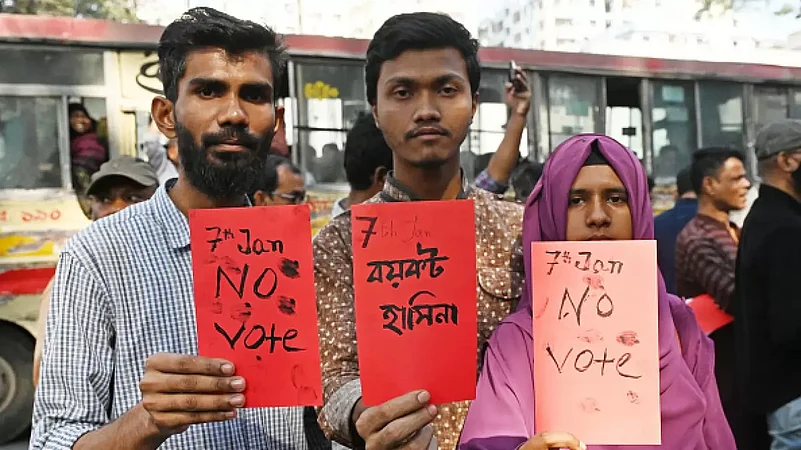 7th Jan
NO
vote
7th Jan
বয়কট
হাসিনা
7th Jan
NO
vote